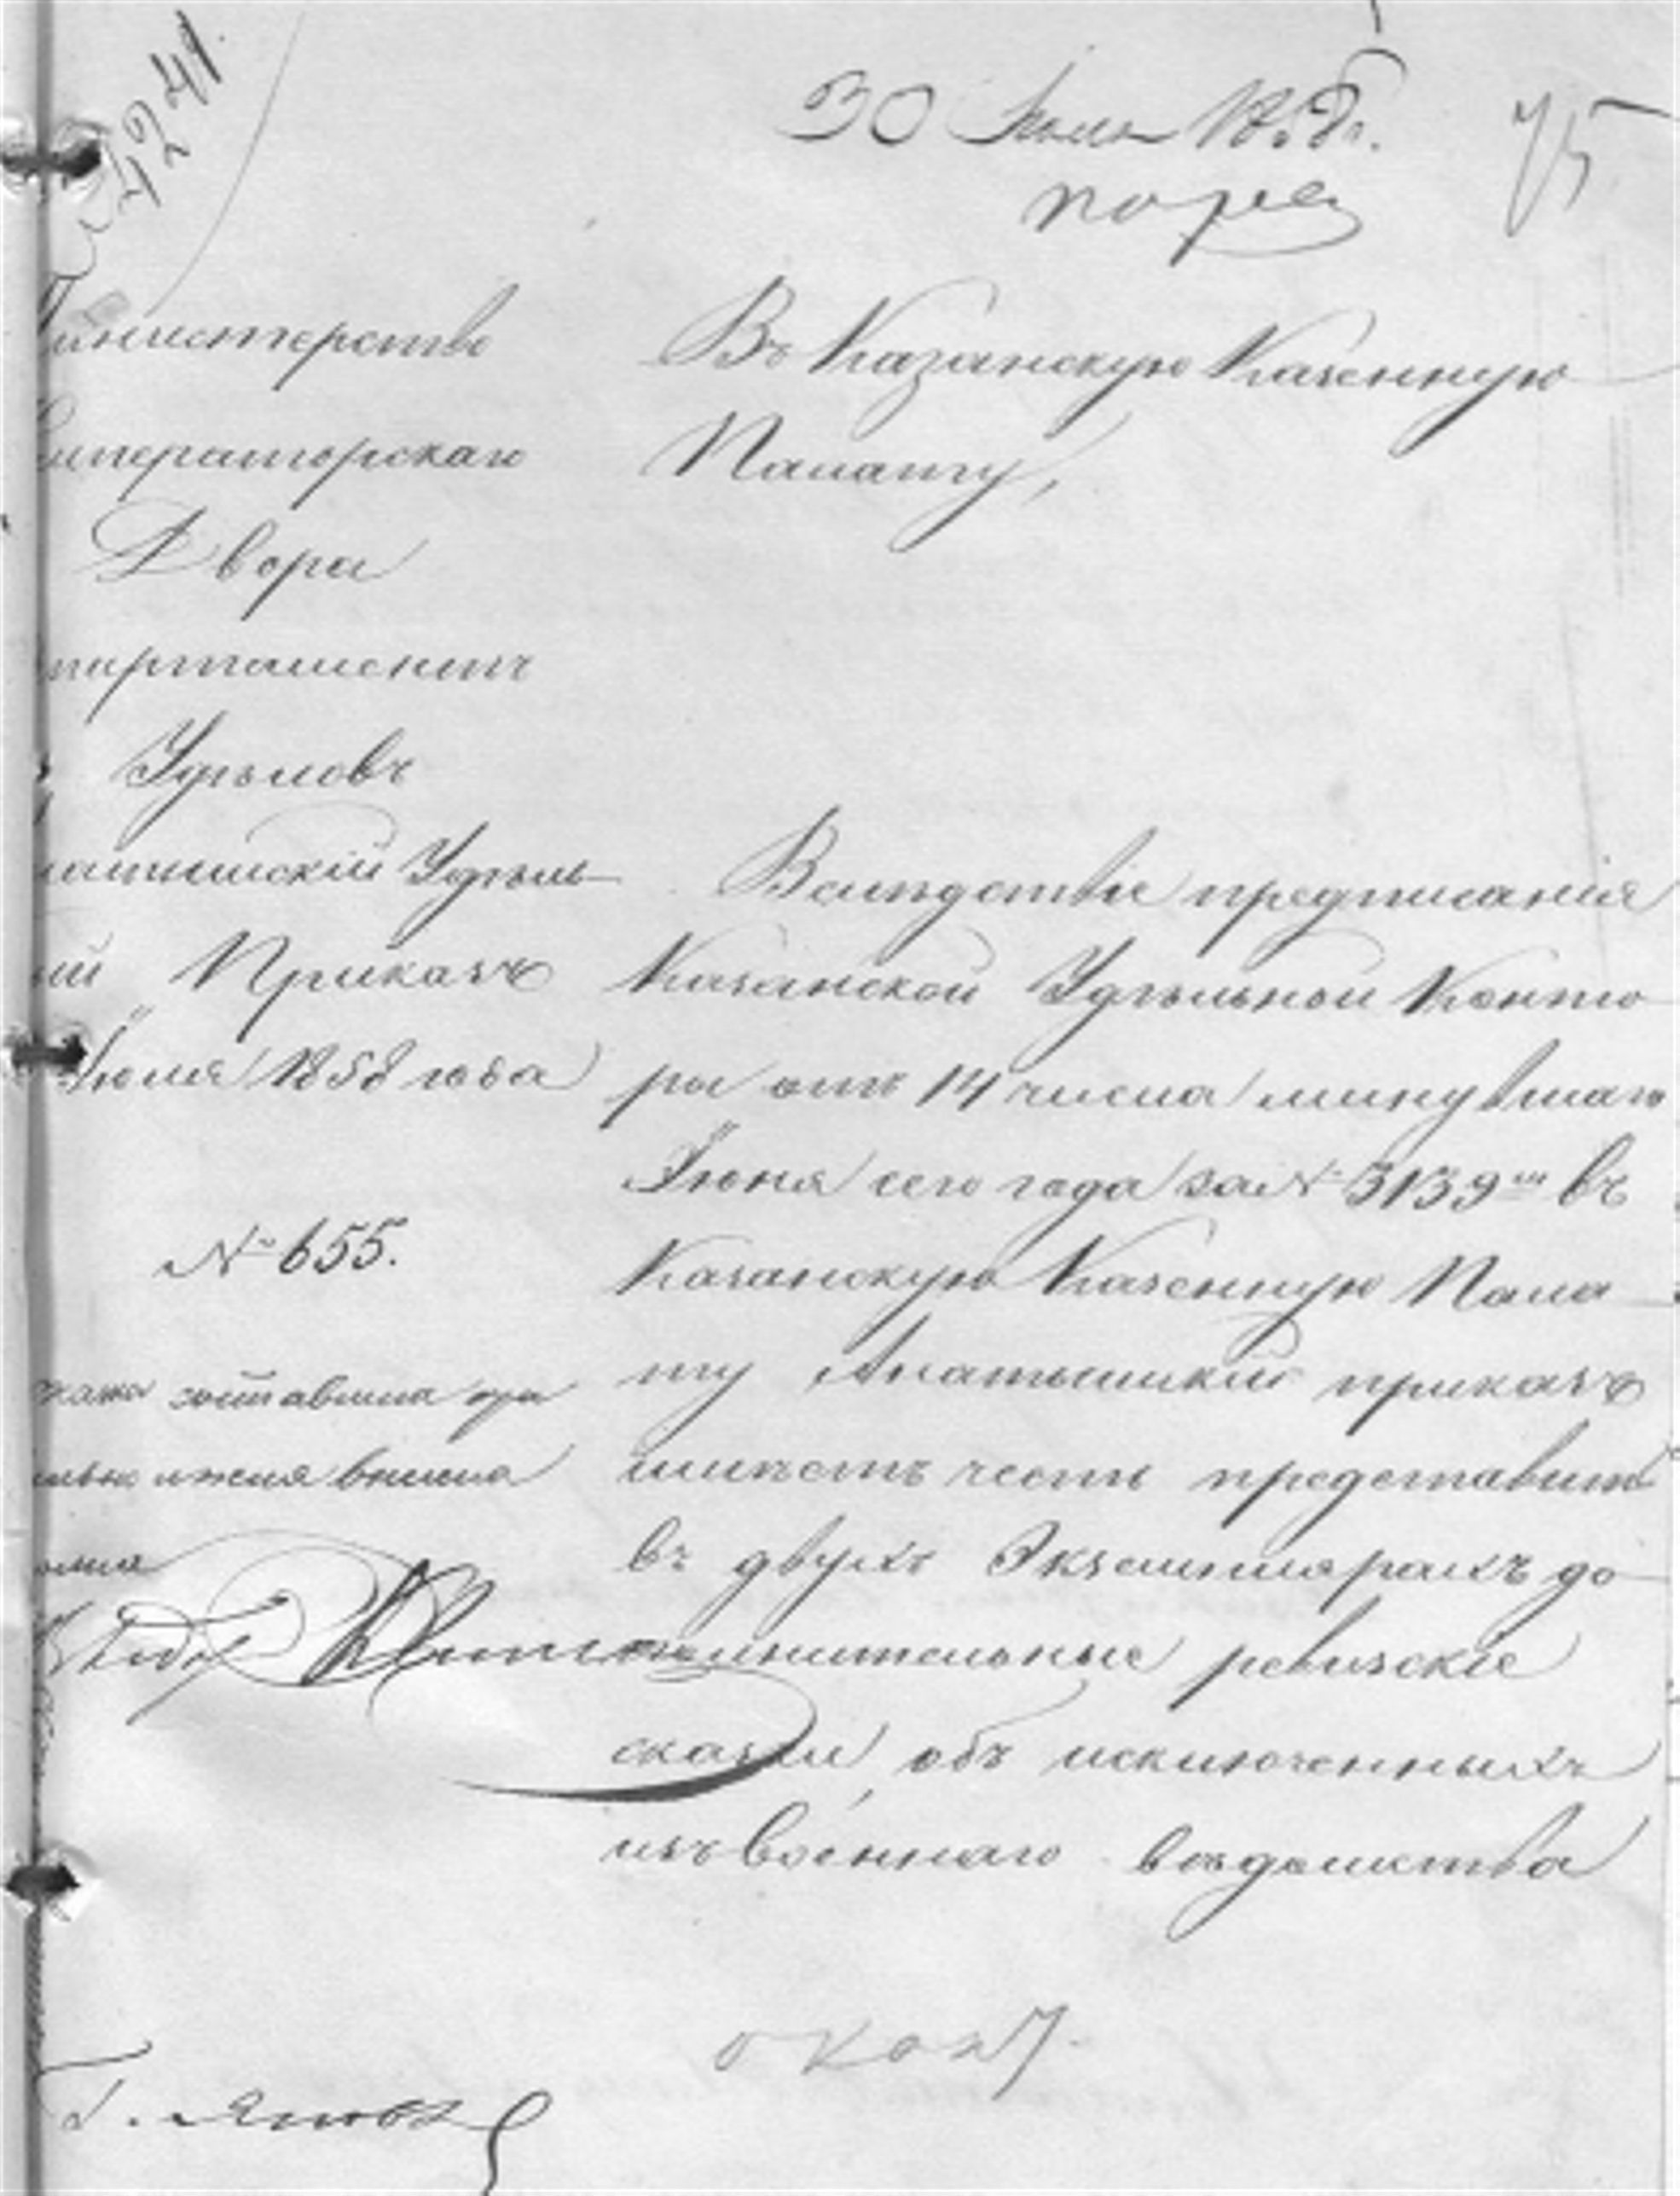 4241.
30 Июля 1858 г.
75
Министерство
Императорскаго
Двора
партаментъ
Удѣловъ
латышскій Удѣль
ый Приказъ
Іюля 1858 года
№ 655.
Въ Казанскую Казенную
Палату,
Вслѣдствіе предписанія
Казанской Удѣльной Конто
ры отъ 14 числа минувшаго
Іюня сего года за № 3139 въ
Казанскую Казенную Пала
ту Алатышскій приказъ
имѣетъ честь представить
въ двухъ Экземплярахъ до
полнительные ревизскіе
сказки объ исключенныхъ
изъ военнаго вѣдомства